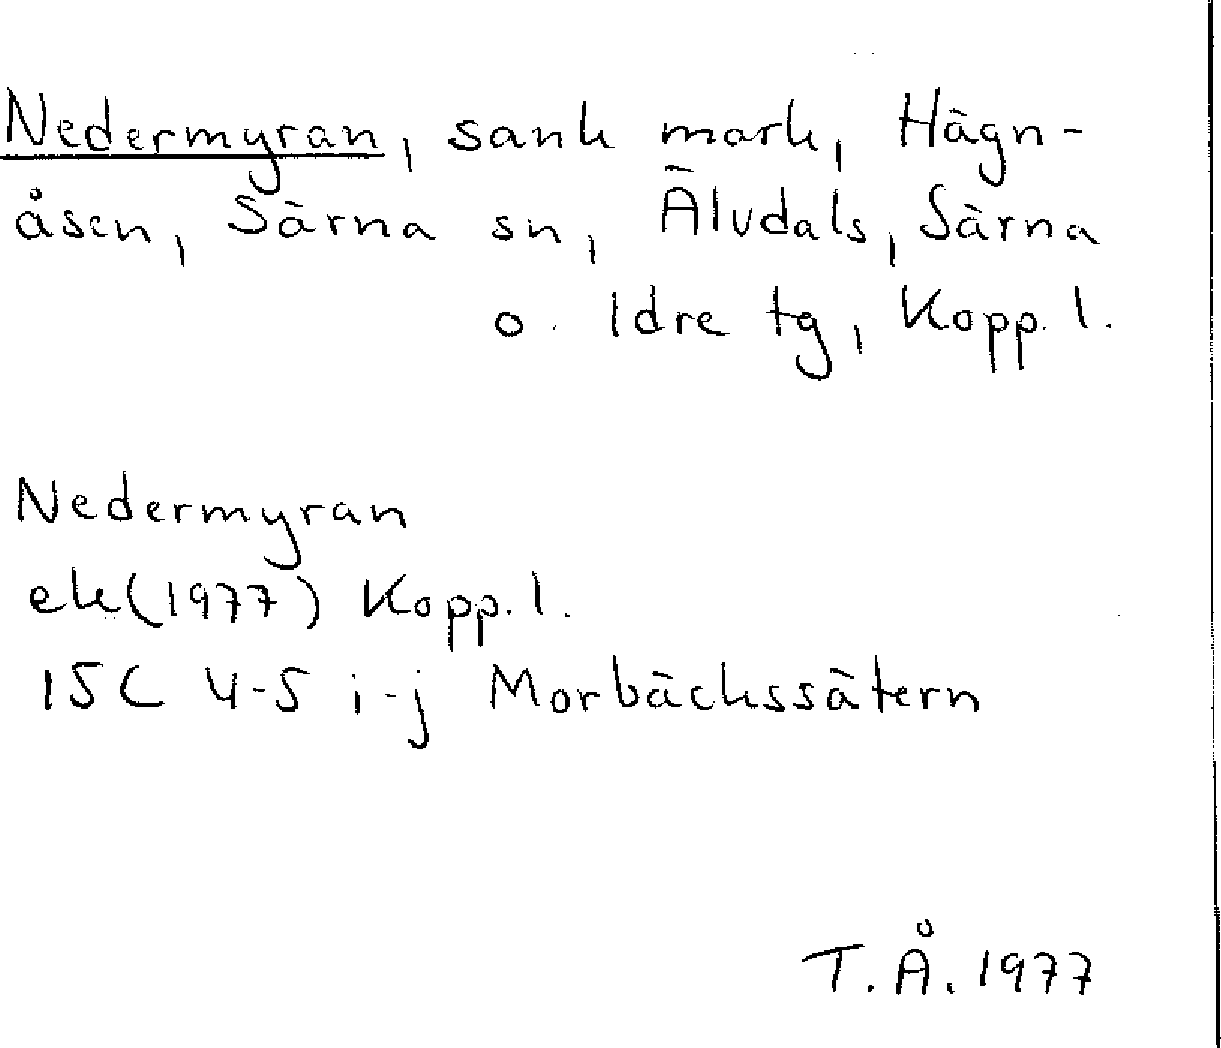 Nedermyran, sank mark, Hägn-
åsen, Särna sn, Älvdals, Särna
o. Idre tg, Kopp. l.
Nedermyran
ek(1977) Kopp. l.
15C 4-5 i-j Morbäckssätern
T. Å. 1977